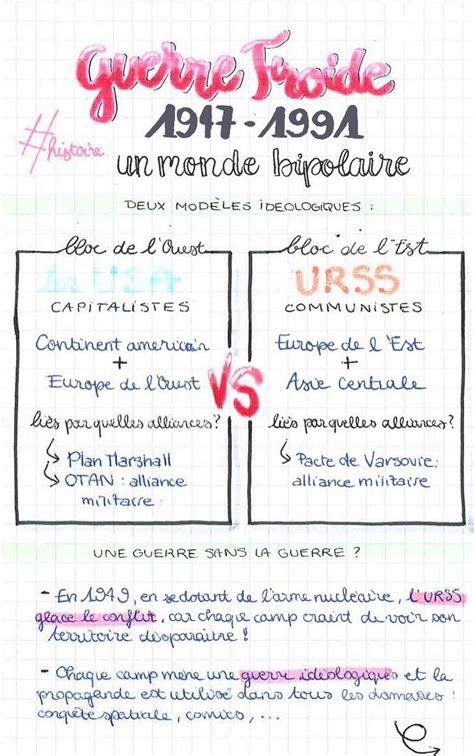 Guerre Froide
1947-1991
#histoire
un monde bipolaire
DEUX MODÈLES IDEOLOGIQUES :
bloc de l'Ouest
USA
CAPITALISTES
Continent americain
+
Europe de l'Ouest
liés par quelles alliances?
Plan Marshall
OTAN : alliance
militaire
VS
bloc de l'Est
URSS
COMMUNISTES
Europe de l'Est
+
Asie Centrale
liés par quelles alliances?
Pacte de Varsovie:
alliance militaire
UNE GUERRE SANS LA GUERRE ?
- En 1949, en se dotant de l'arme nucléaire, l'URSS
glace le conflit, car chaque camp craint de voir son
territoire disparaitre !
- Chaque camp mène une guerre idéologique et la
propagande est utilisé dans tous les domaines :
conqête spatiale, comics, ...